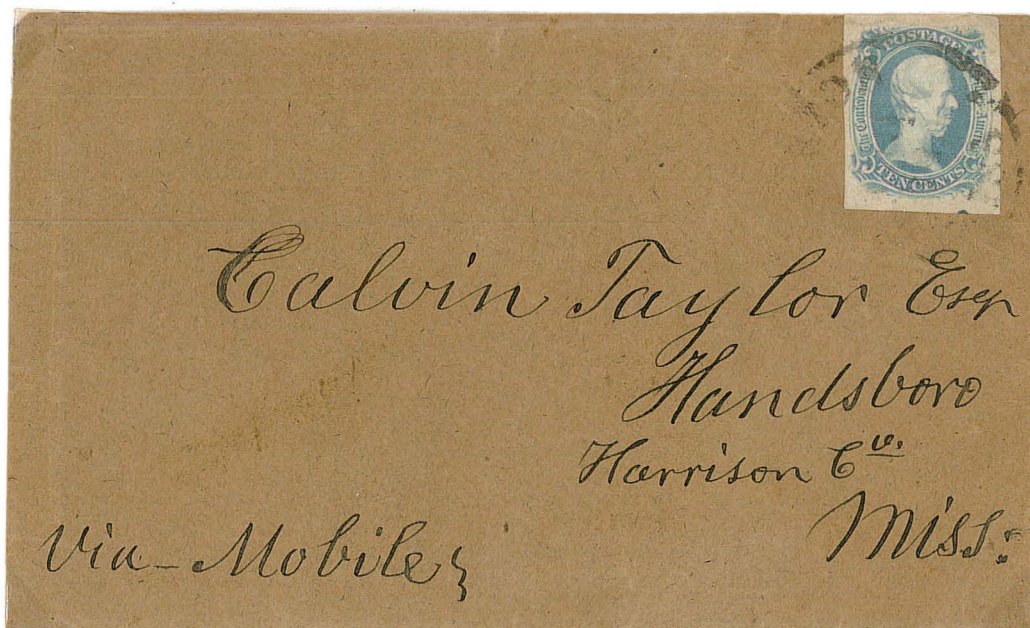 POSTAGE
The Confederate
of America
TEN CENTS
Calvin Taylor Esqr
Handsboro
Harrison Co.
Miss:
Via - Mobile